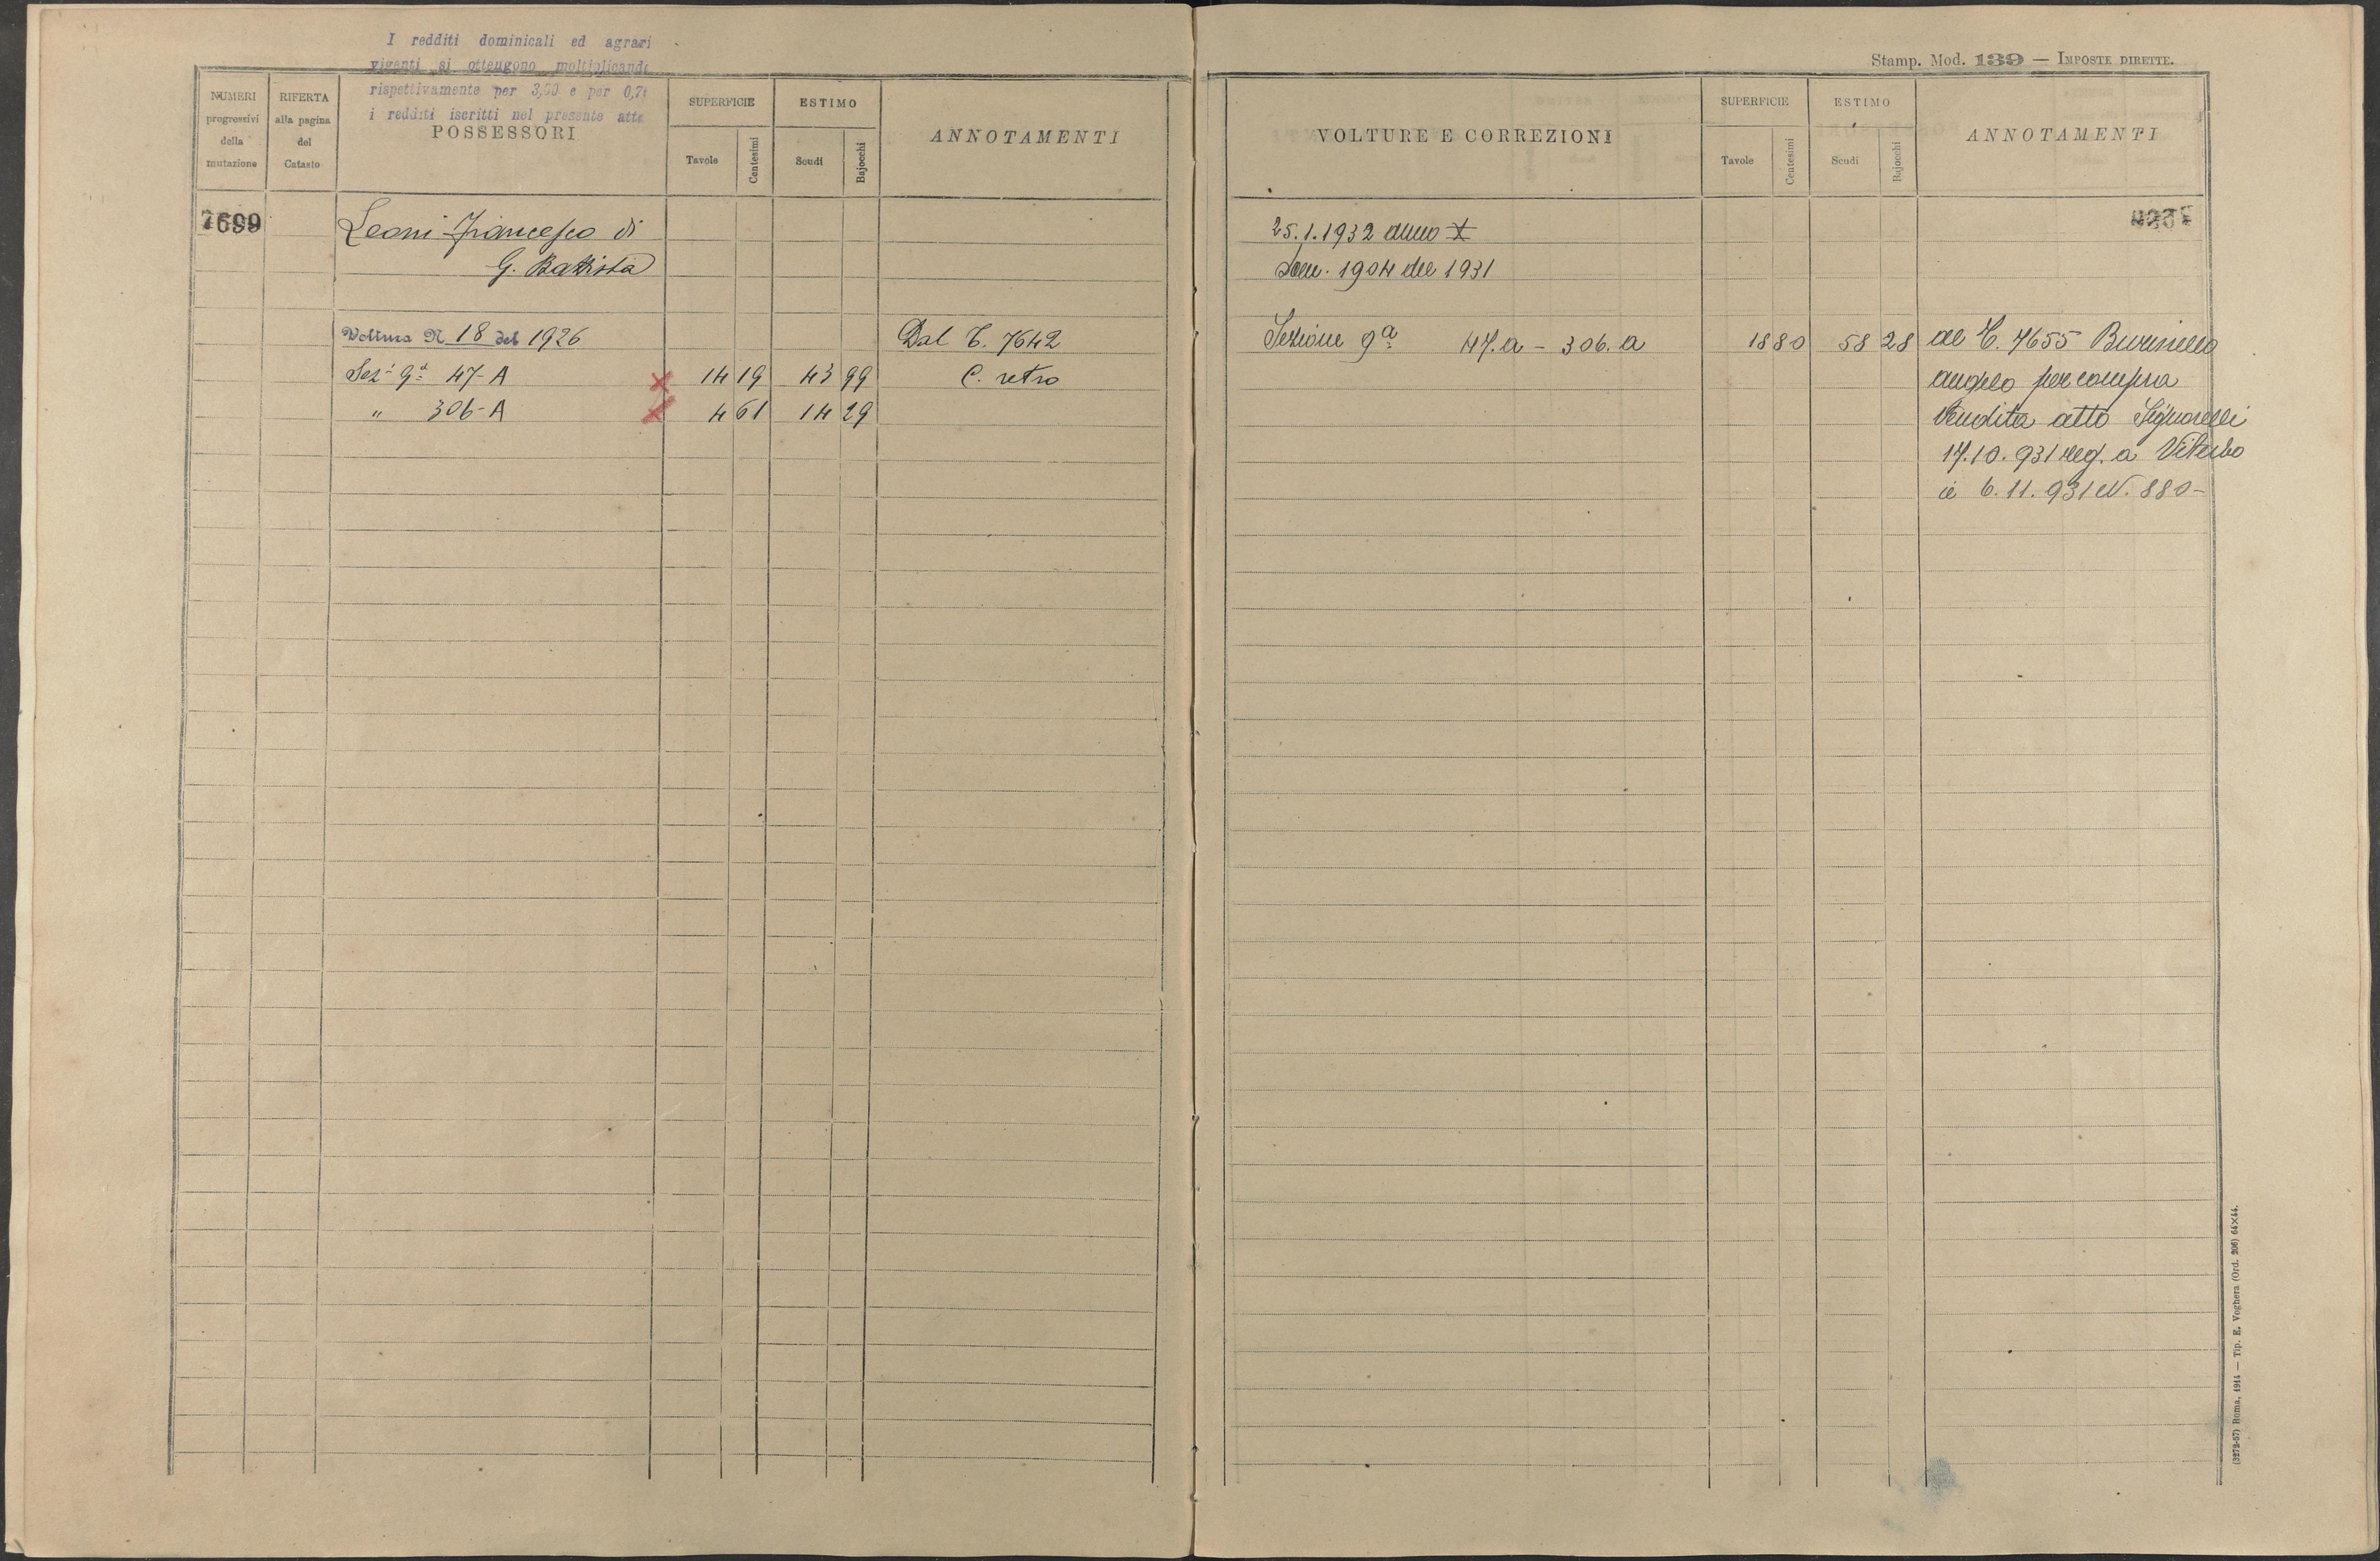 I redditi dominicali ed agrari
vigenti si ottengono moltiplicando
rispettivamente per 3,00 e per 0,7
i redditi iscritti nel presente atto
NUMERI progressivi della mutazione
RIFERTA alla pagina del Catasto
POSSESSORI
SUPERFICIE
Tavole Centesimi
ESTIMO
Scudi Bajocchi
ANNOTAMENTI
7699 Leoni Francesco di
G. Battista
Voltura N 18 del 1926 Dal C. 7642
Sez. 9ª 47-A 14 19 43 99 C. retro
" 306-A 4 61 14 29
Stamp. Mod. 139 — IMPOSTE DIRETTE.
VOLTURE E CORREZIONI
SUPERFICIE
Tavole Centesimi
ESTIMO
Scudi Bajocchi
ANNOTAMENTI
25.1.1932 anno X
1904 del 1931
Sezione 9ª 47.a - 306.a 18 80 58 28 al C. 7655
Angelo per compra
Vendita atto Signorelli
17.10.931 reg. a Viterbo
6.11.931 N. 880-
(3272-57) Roma, 1914 — Tip. E. Voghera (Ord. 206) 64×44.